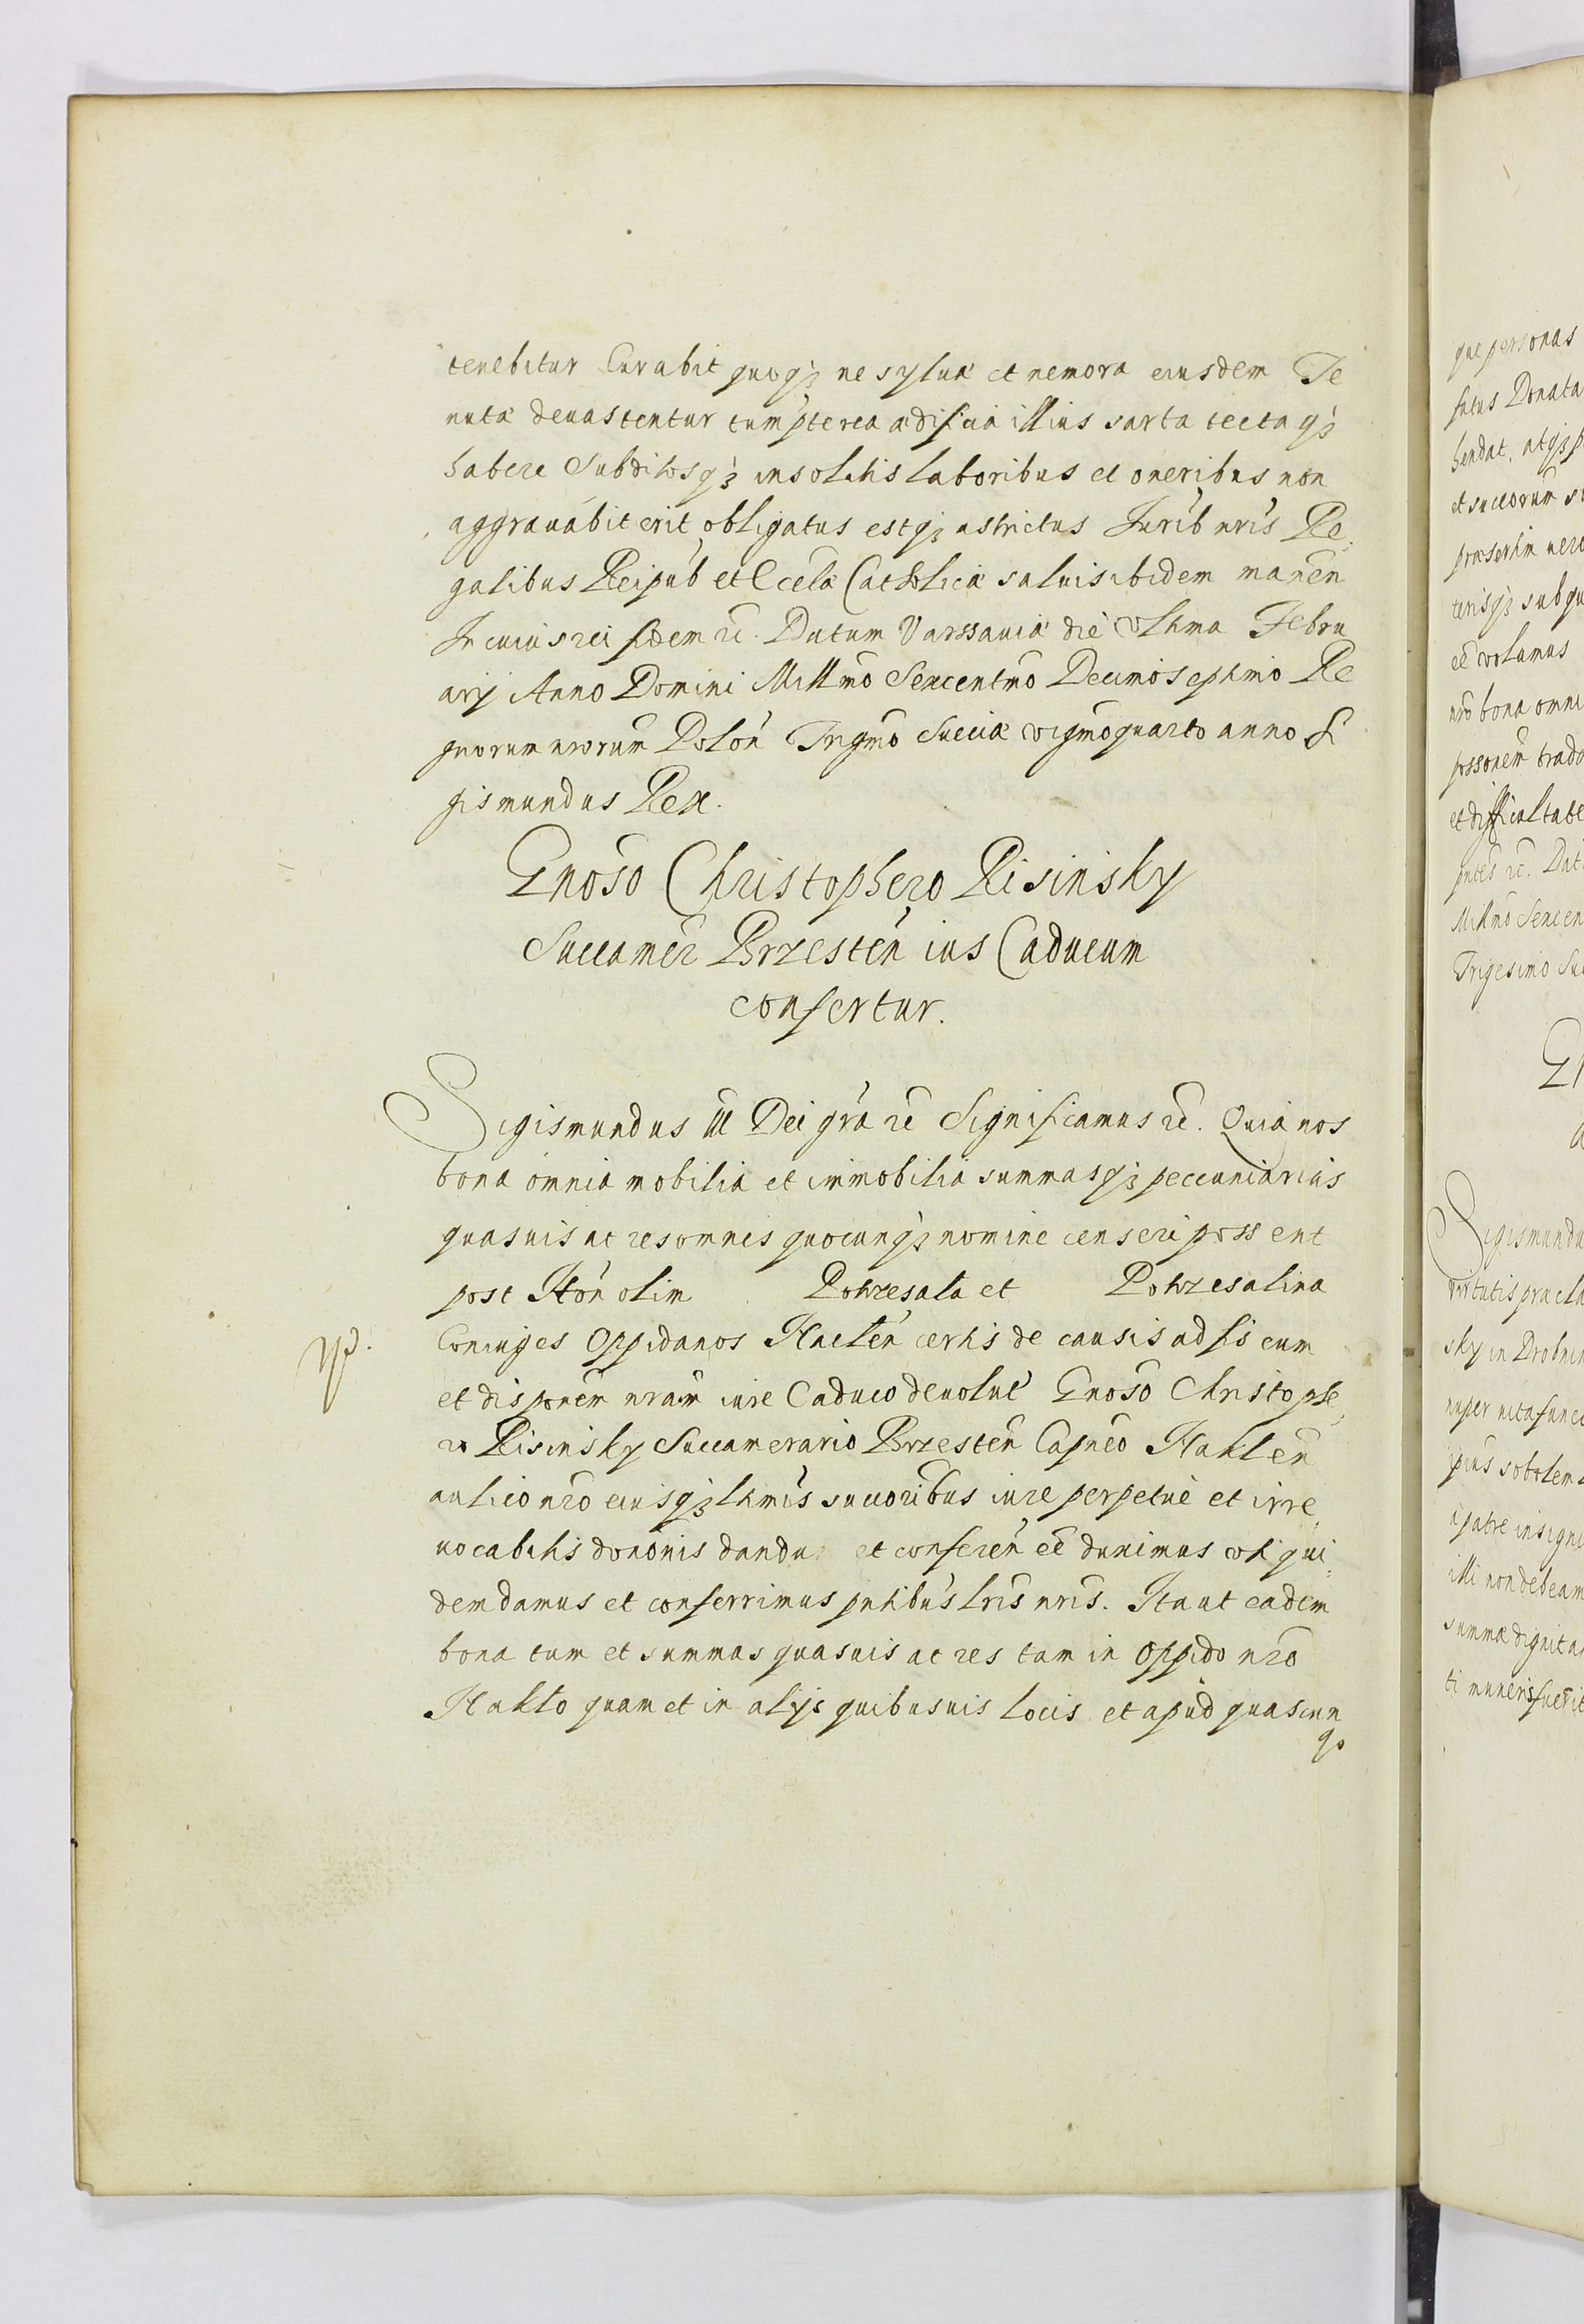 tenebitur Curabit quoqȝ ne syluæ et nemora eiusdem Te
nutæ deuastentur tum pterea ædificia illius sarta tectaqȝ
habere Subditosqȝ insolitis laboribus et oneribus non
aggrauabit erit obligatus estqȝ astrictus Jurib nris Re
galibus Reipub et Eccla Catholicæ saluis ibidem manen
In cuius rei fidem rc. Datum Varssauiæ die vltima Febru
arij Anno Domini Millmo Sexcentmo Decimoseptimo Re
gnorum nrorum Polon Trigmo Sueciæ vigmoquarto anno Si
gismundus Rex.
Gnoso Christophero Risinsky
Succamer Brzesten ius Caducum
confertur.
Sigismundus III Dei gra rc Significamus rc. Quia nos
bona omnia mobilia et immobilia summasqȝ peccuniarias
quasuis ac res omnes quocunqȝ nomine censeri possent
post Hon olim Powzesala et Powzesalina
Coniuges Oppidanos certis de causis ad fiscum
et disponem nram iure Caduco deuolut Gnoso Christophe
ro Risinsky Succamerario Brzesten Capneo
aulico nro eiusqȝ ltmis succoribus iure perpetue et irre
uocabilis dononis dandu et conferen ee duximus vti qui
dem damus et conferrimus pntibus lris nris. Ita ut eadem
bona tum et summas quasuis ac res tam in Oppido nro
Naklo quam et in alijs quibusuis locis et apud quascun
qȝ
que personas
hendat, atqȝ p
et succorum su
præsertim uero
ee volumus
nro bona omni
possonem trado
et difficultate
Millmo Sexcen
Trigesimo Sue
Sigismundu
virtutis præcla
illi non debeam
summæ dignita